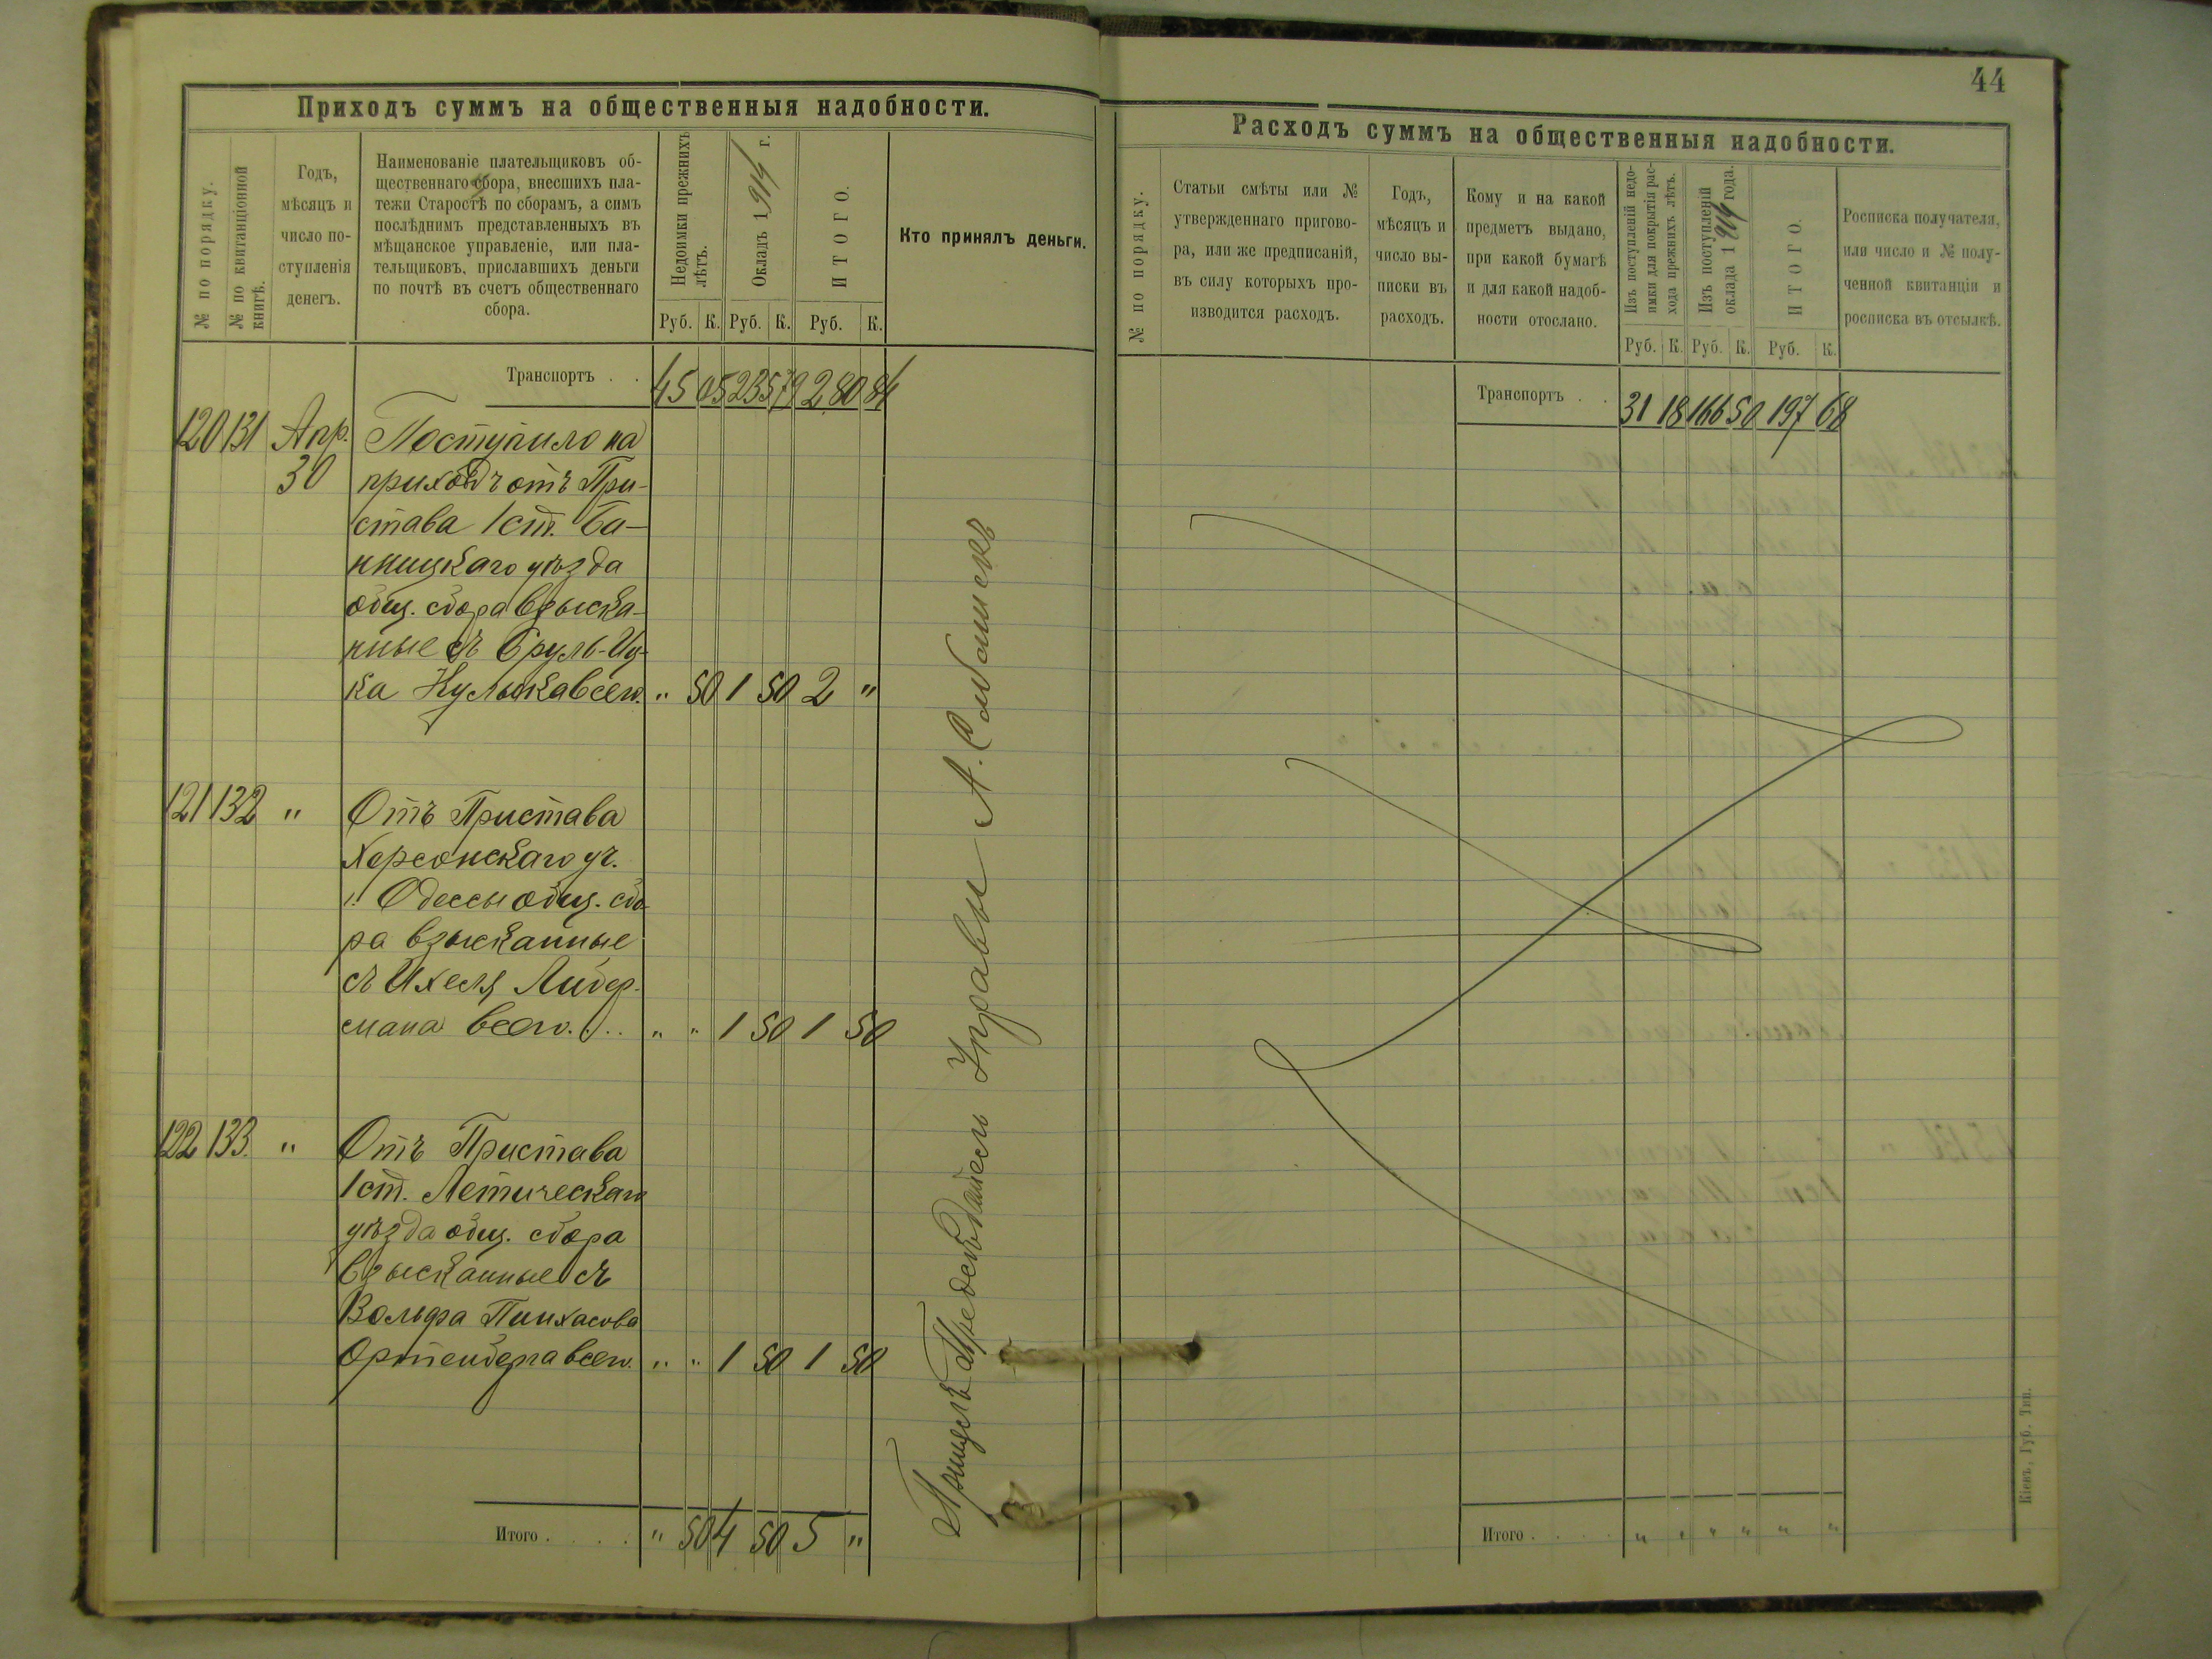 44
Приходъ суммъ на общественныя надобности.
№ по порядку.
№ по квитанціонной книгѣ.
Годъ,
мѣсяцъ и
число по-
ступленія
денегъ.
Наименованіе плательщиковъ об-
щественнаго сбора, внесшихъ пла-
тежи Старостѣ по сборамъ, а симъ
послѣднимъ представленныхъ въ
мѣщанское управленіе, или пла-
тельщиковъ, приславшихъ деньги
по почтѣ въ счетъ общественнаго
сбора.
Недоимки прежнихъ
лѣтъ.
Окладъ 1914 г.
ИТОГО.
Кто принялъ деньги.
Руб. К. Руб. К. Руб. К.
Транспортъ . . 45 05 235 79 280 84
120 131 Апр. Поступило на
30 приходъ отъ При-
става 1 ст.
уѣзда
общ. сбора взыска-
ные съ Сруль-Иц-
ка всего. " 50 1 50 2 "
121 132 " Отъ Пристава
Херсонскаго уч.
г. Одессы общ. сбо-
ра взысканные
съ Ихеля Либер-
мана всего. . . " " 1 50 1 50
122 133. " Отъ Пристава
1 ст. Летическаго
уѣзда общ. сбора
взысканные съ
Вольфа Пинхасова
Ортенберга всего. " " 1 50 1 50
Итого . . . . " 50 4 50 5 "
Управы А.
Расходъ суммъ на общественныя надобности.
№ по порядку.
Статьи смѣты или №
утвержденнаго пригово-
ра, или же предписаній,
въ силу которыхъ про-
изводится расходъ.
Годъ,
мѣсяцъ и
число вы-
писки въ
расходъ.
Кому и на какой
предметъ выдано,
при какой бумагѣ
и для какой надоб-
ности отослано.
Изъ поступленій недо-
имки для покрытія рас-
хода прежнихъ лѣтъ.
Изъ поступленій
оклада 1914 года.
ИТОГО.
Росписка получателя,
или число и № полу-
ченной квитанціи и
росписка въ отсылкѣ.
Руб. К. Руб. К. Руб. К.
Транспортъ . . 31 18 166 50 197 68
Итого . . . . " " " " " "
Кіевъ, Губ. Тип.